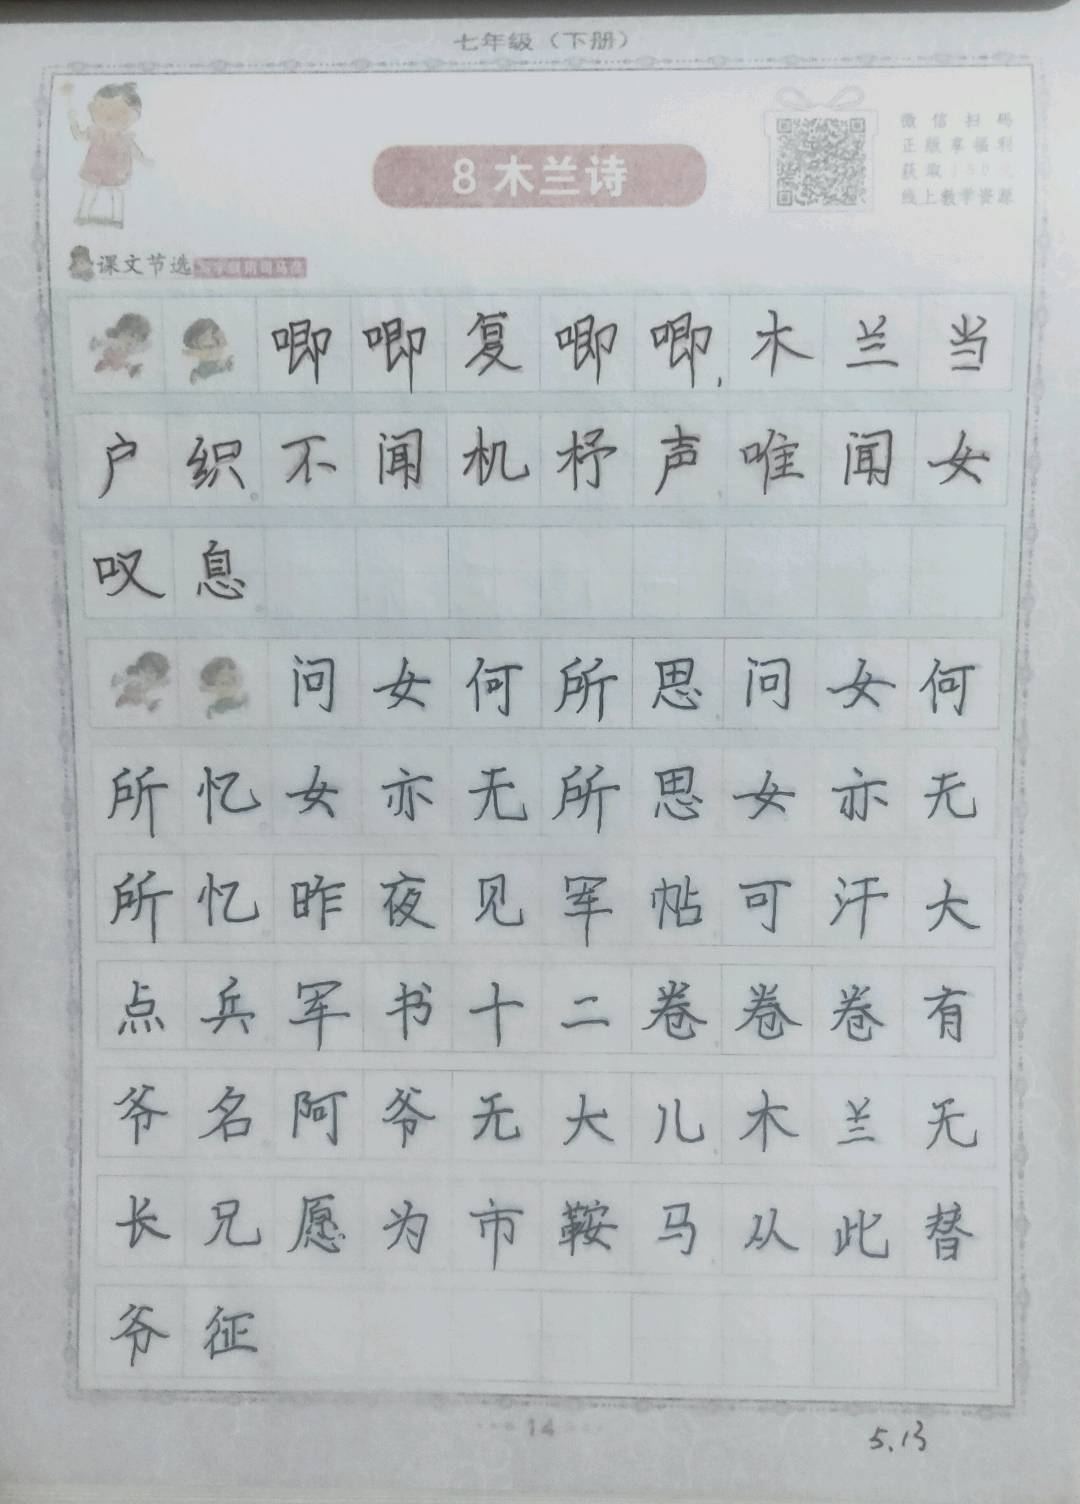 七年级（下册）
8 木兰诗
微信扫码
正版享福利
获取150元
线上教学资源
课文节选
唧唧复唧唧,木兰当
户织。不闻机杼声唯闻女
叹息。
问女何所思问女何
所忆女亦无所思女亦无
所忆昨夜见军帖可汗大
点兵军书十二卷卷卷有
爷名阿爷无大儿木兰无
长兄愿为市鞍马从此替
爷征
14
5.13